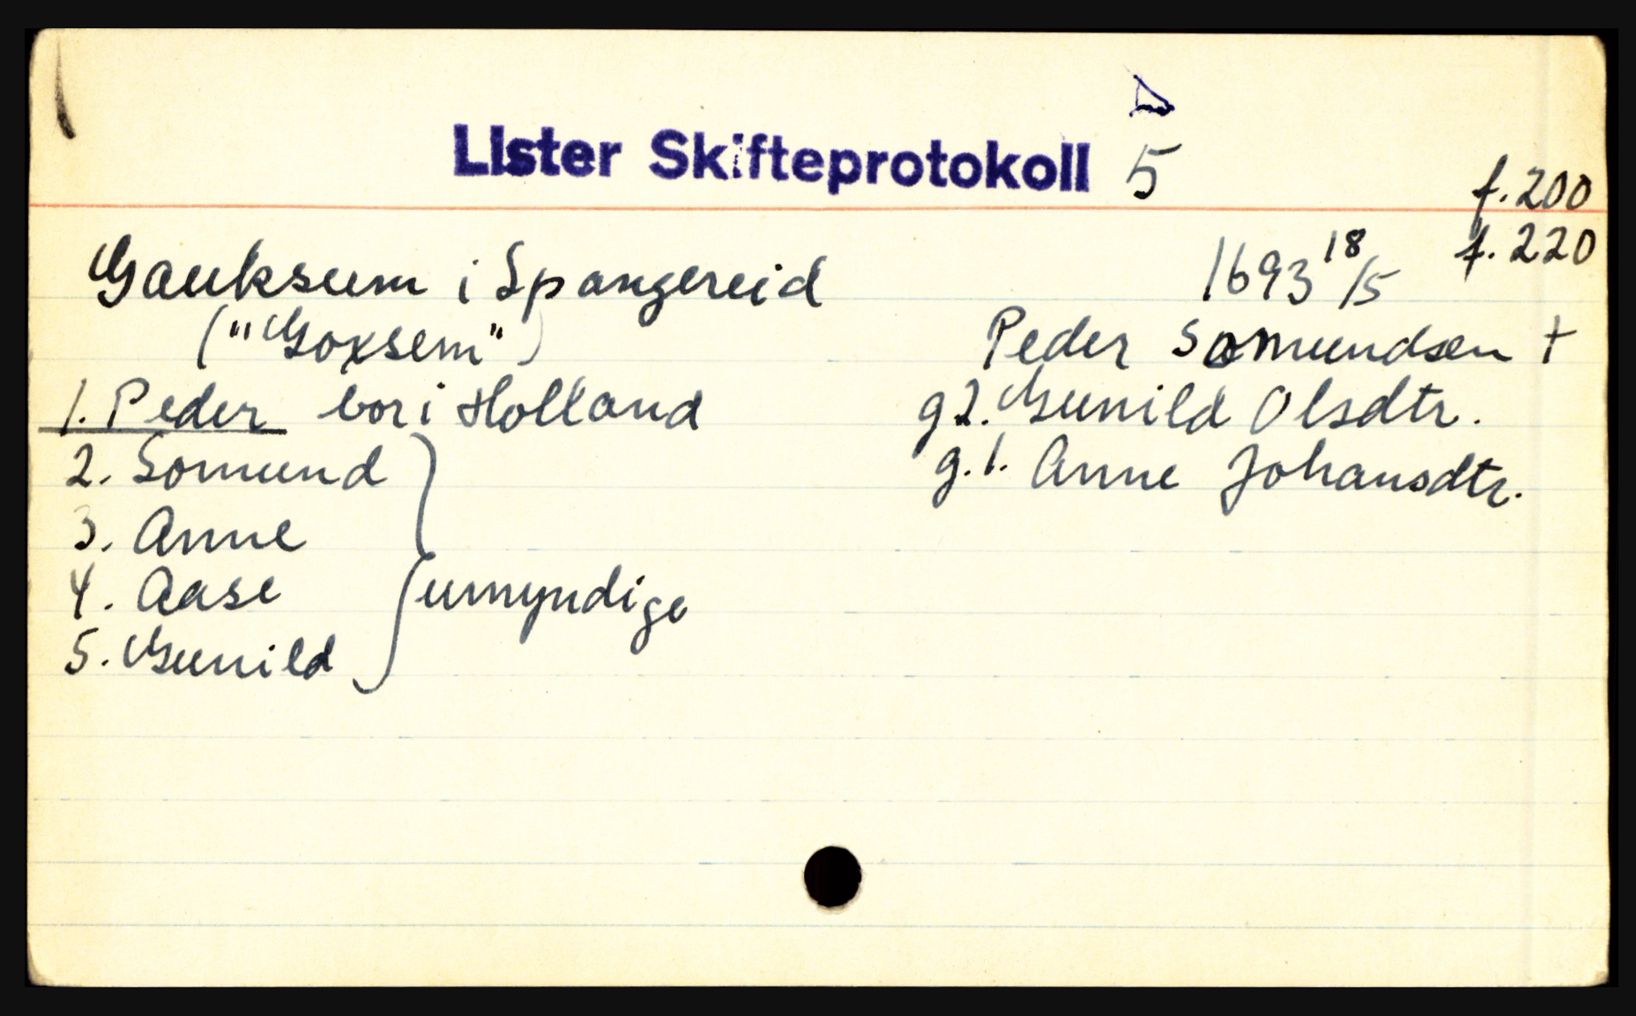 Lister Skifteprotokoll 5
f. 200
f. 220
Gauksum i Spangereid
1693 18/5
("Goxsem")
Peder Somundsen †
1. Peder bor i Holland
g 2. Gunild Olsdtr.
2. Somund
g. 1. Anne Johansdtr.
3. Anne
4. Aase
umyndige
5. Gunild